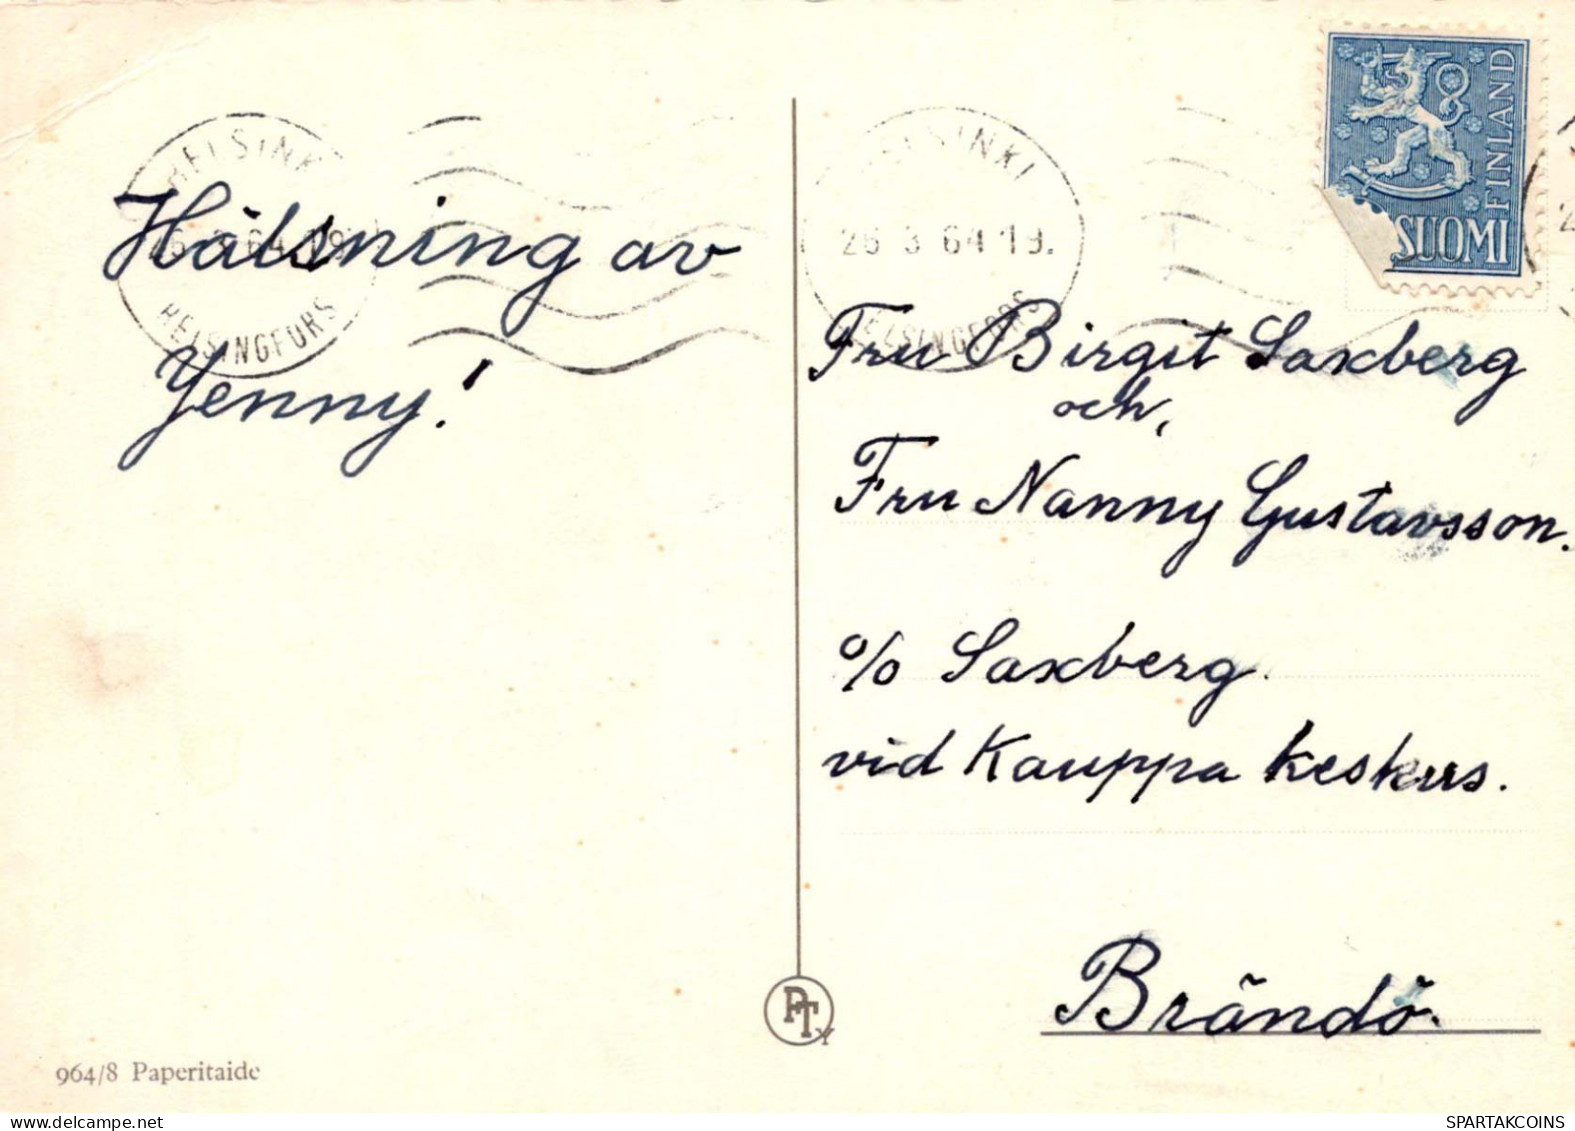 HELSINKI
26.3.64 19
HELSINGFORS
Hälsning av
Jenny!
964/8 Paperitaide
PTy
HELSINKI
26.3.64 19.
HELSINGFORS
FINLAND
SUOMI
Fru Birgit Saxberg
och,
Fru Nanny Gustavsson.
c/o Saxberg.
vid Kauppa keskus.
Brändö.
SPARTAKCOINS